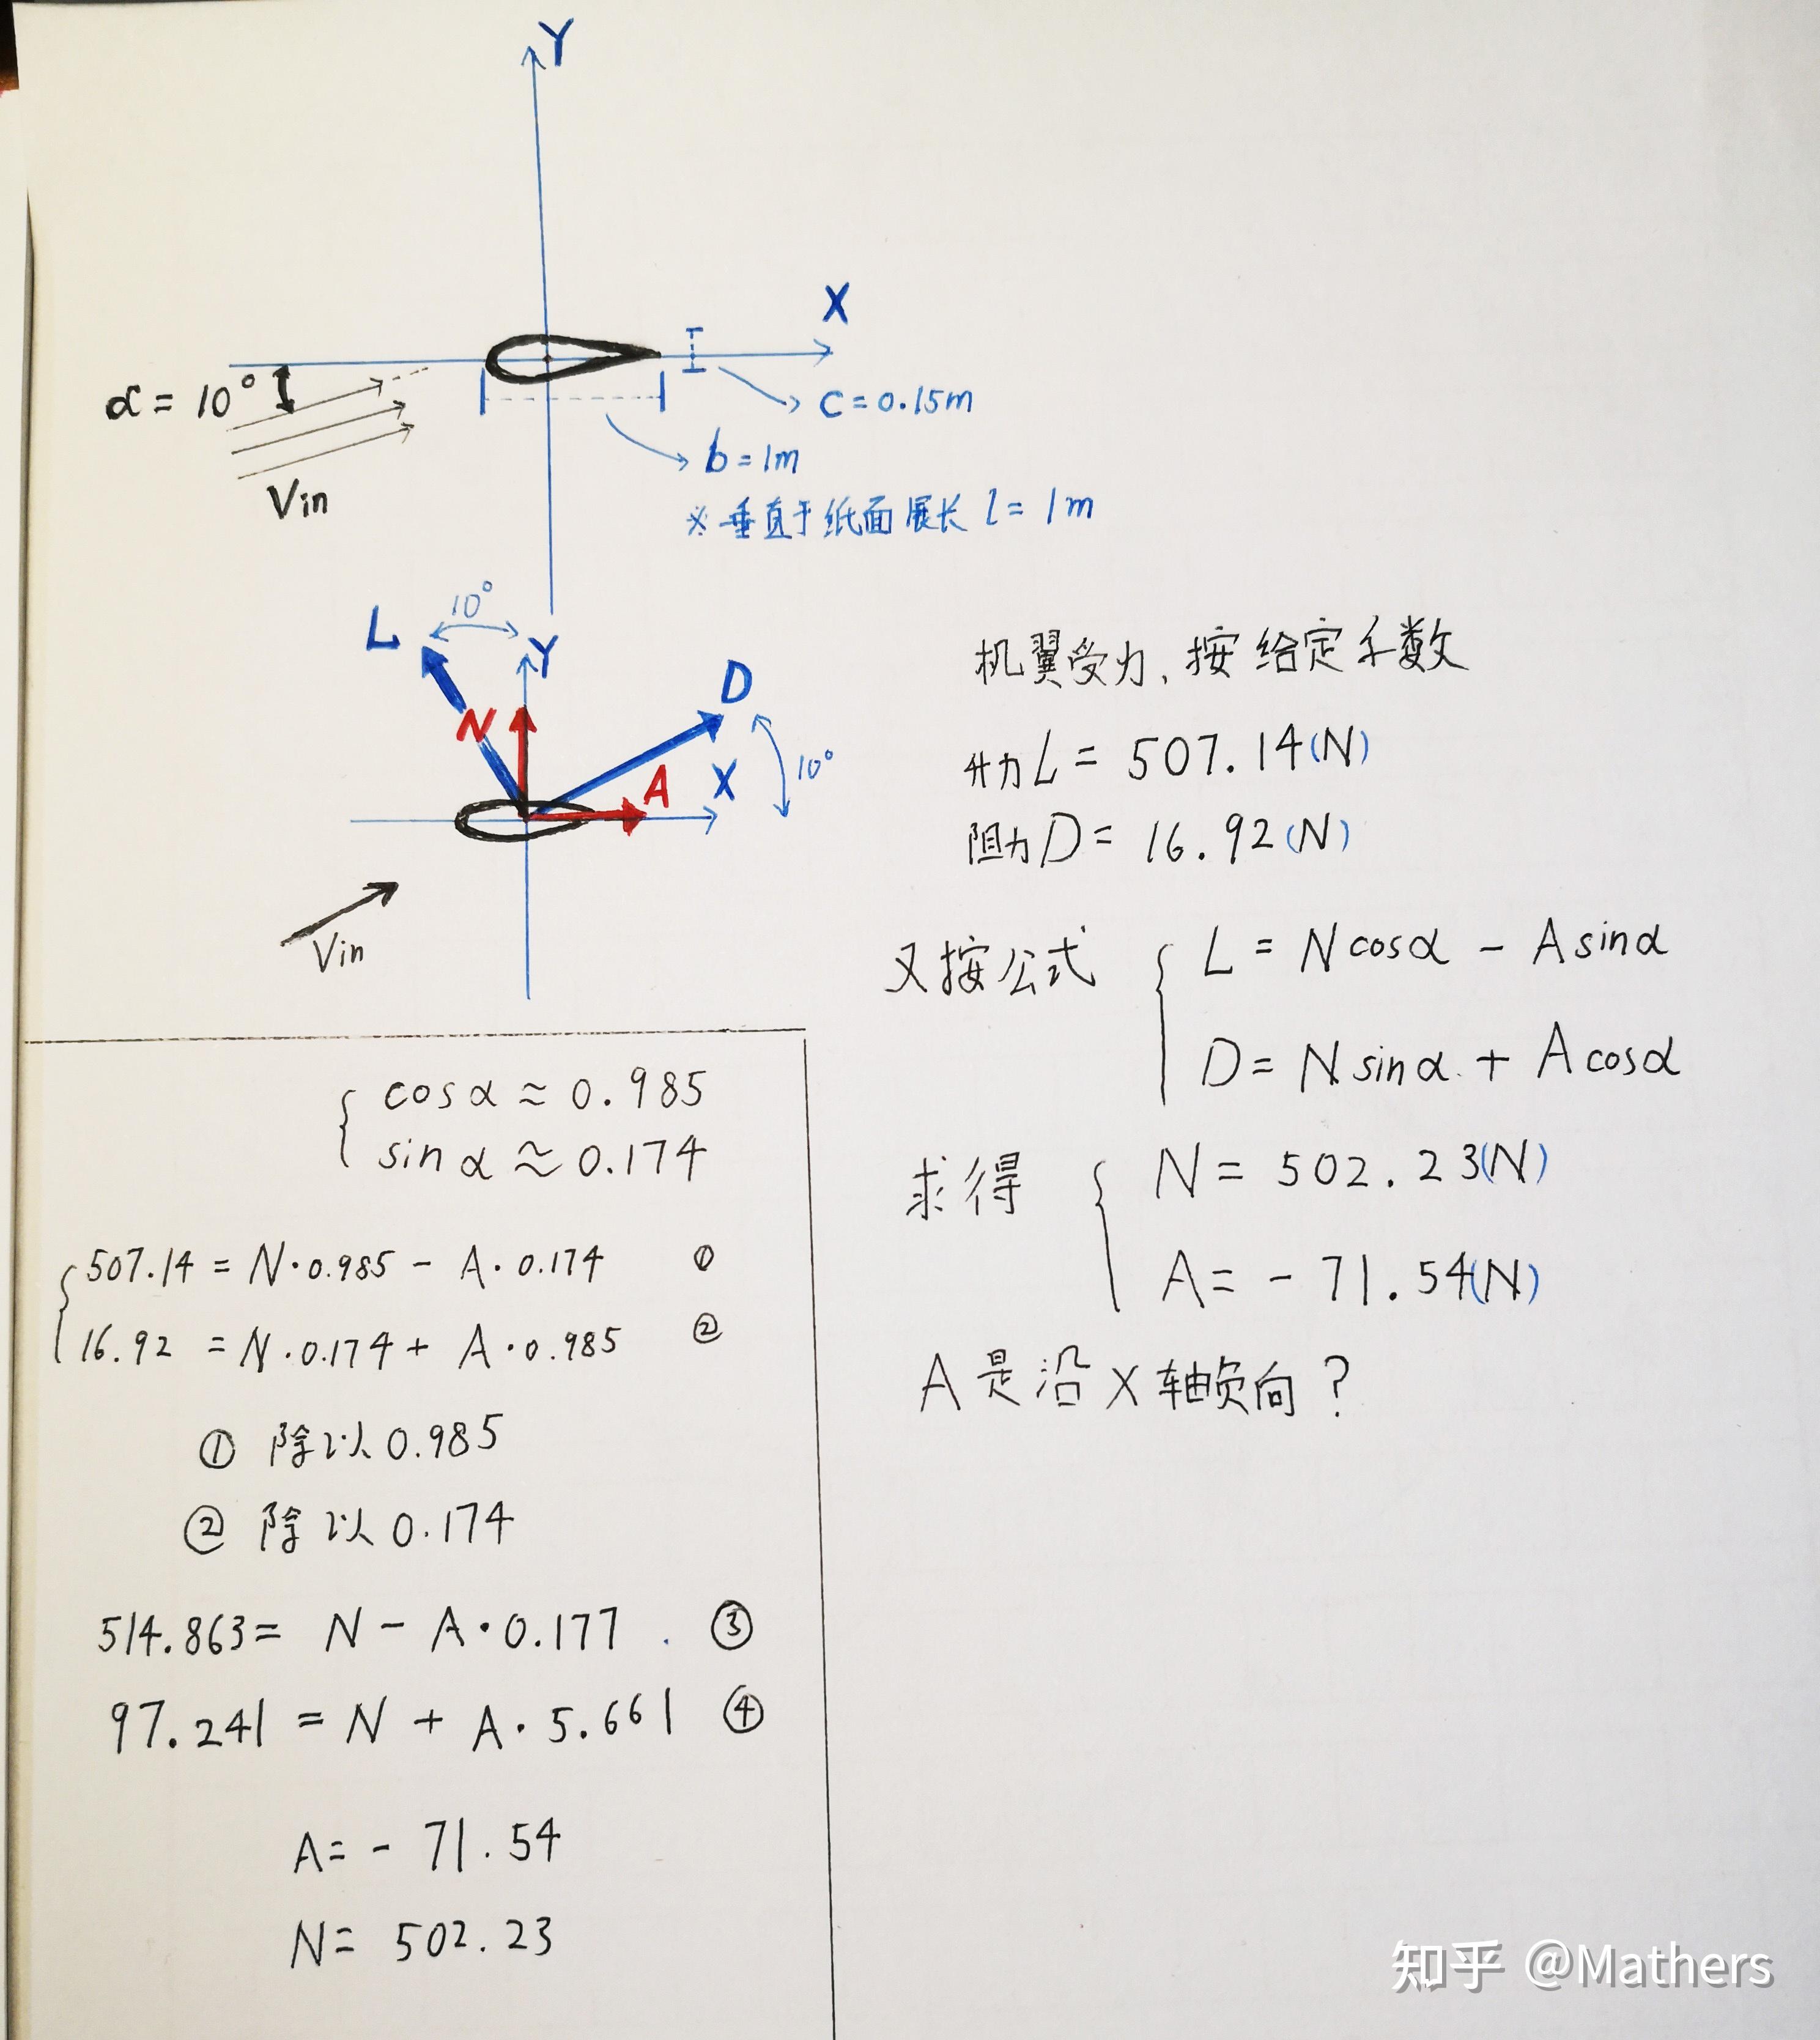 Y
X
α = 10°
Vin
c = 0.15m
b = 1m
※ 垂直于纸面展长 l = 1m
10°
L
Y
N
D
A
X
10°
Vin
机翼受力, 按给定系数
升力L = 507.14(N)
阻力D = 16.92(N)
又按公式 { L = Ncosα - Asinα
D = Nsinα + Acosα
求得 { N = 502.23(N)
A = - 71.54(N)
A是沿X轴负向?
{ cosα ≈ 0.985
sinα ≈ 0.174
{ 507.14 = N·0.985 - A·0.174 ①
16.92 = N·0.174 + A·0.985 ②
① 除以 0.985
② 除以 0.174
514.863 = N - A·0.177 ③
97.241 = N + A·5.661 ④
A = - 71.54
N = 502.23
知乎 @Mathers